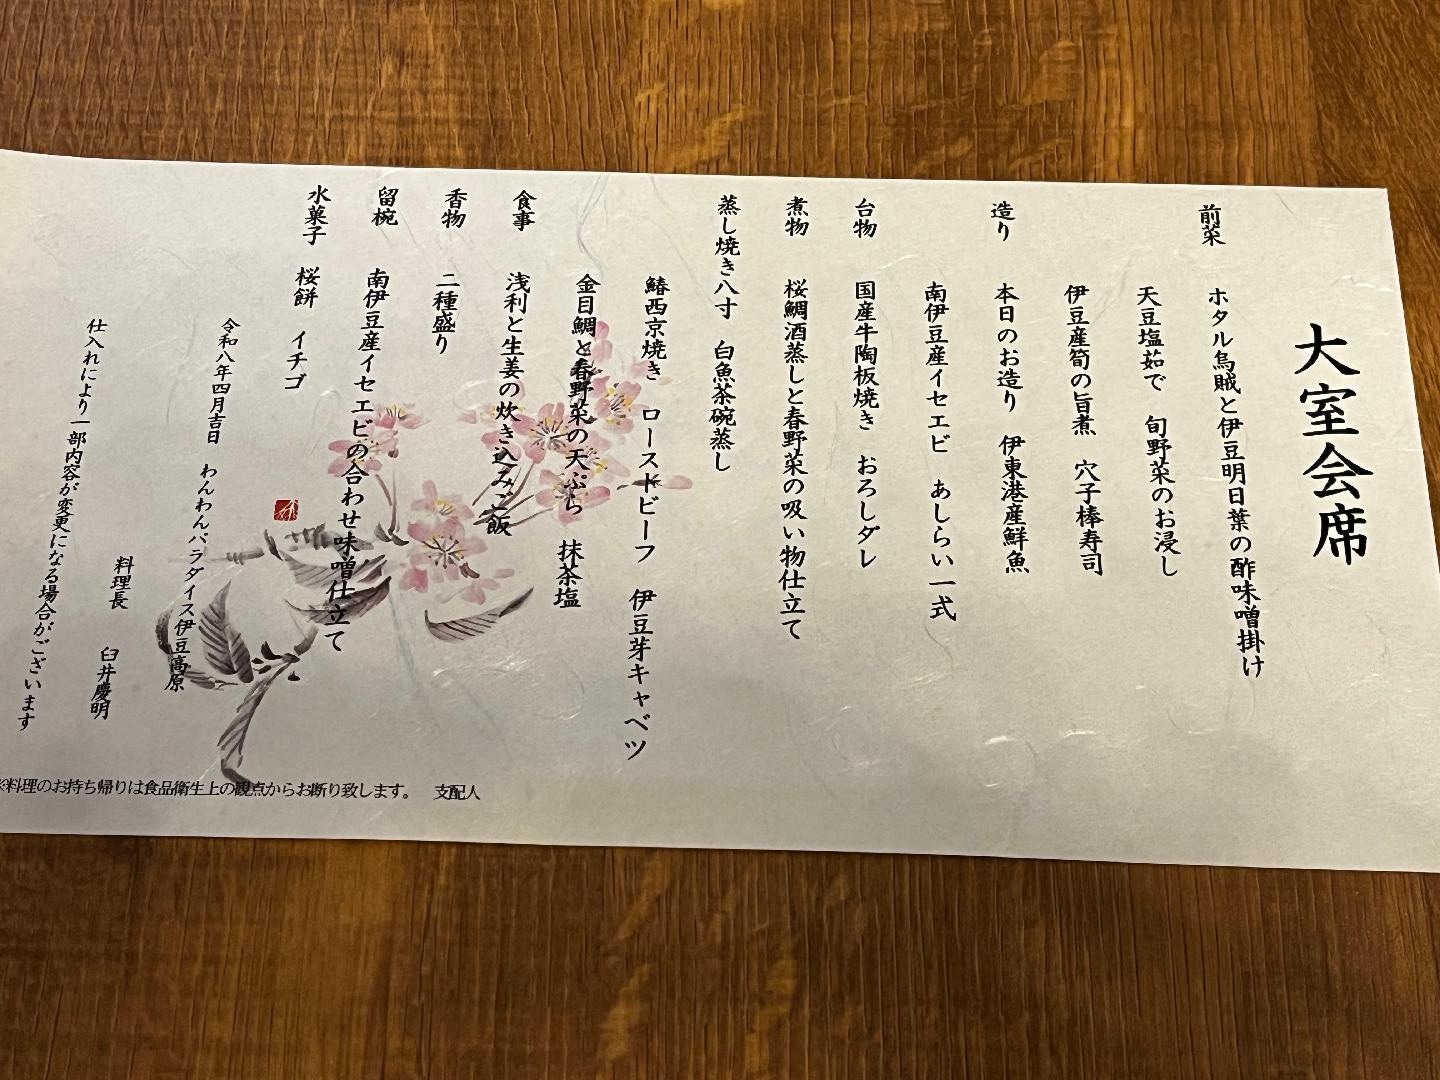 大室会席
前菜　ホタル烏賊と伊豆明日葉の酢味噌掛け
天豆塩茹で　旬野菜のお浸し
伊豆産筍の旨煮　穴子棒寿司
造り　本日のお造り　伊東港産鮮魚
南伊豆産イセエビ　あしらい一式
台物　国産牛陶板焼き　おろしダレ
煮物　桜鯛酒蒸しと春野菜の吸い物仕立て
蒸し焼き八寸　白魚茶碗蒸し
鰆西京焼き　ローストビーフ　伊豆芽キャベツ
金目鯛と春野菜の天ぷら　抹茶塩
食事　浅利と生姜の炊き込みご飯
香物　二種盛り
留椀　南伊豆産イセエビの合わせ味噌仕立て
水菓子　桜餅　イチゴ
令和八年四月吉日　わんわんパラダイス伊豆高原
料理長　臼井慶明
仕入れにより一部内容が変更になる場合がございます
※料理のお持ち帰りは食品衛生上の観点からお断り致します。　支配人